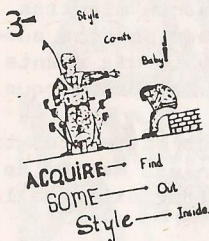 3-
Style
counts
Baby!
ACQUIRE → Find
SOME → Out
Style → Inside.